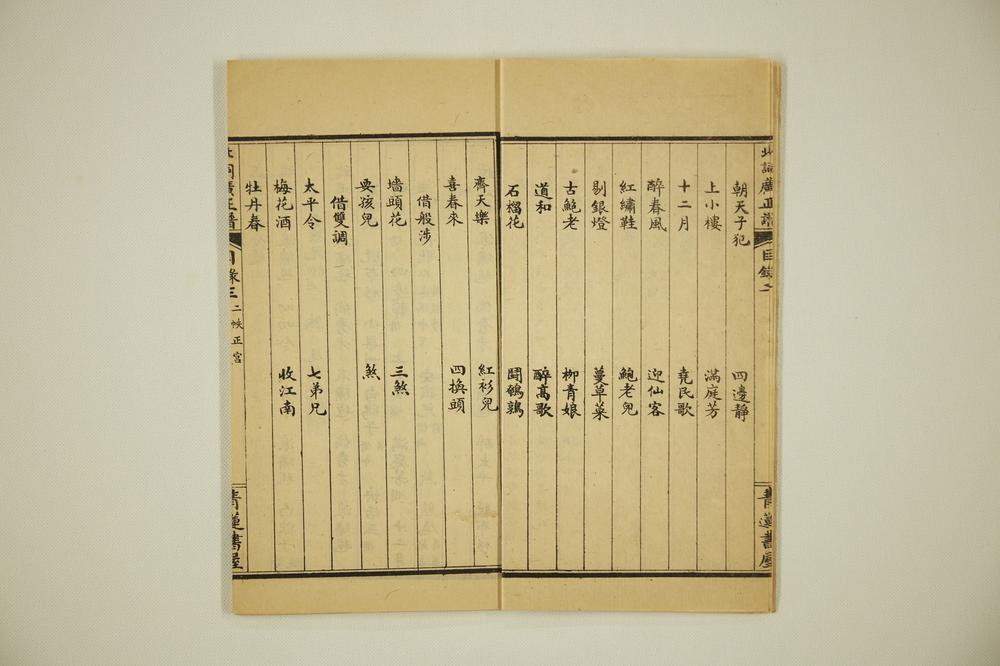 北詞廣正譜 目錄二 青蓮書屋
朝天子犯 四邊靜
上小樓 滿庭芳
十二月 堯民歌
醉春風 迎仙客
紅繡鞋 鮑老兒
剔銀燈 蔓草菜
古鮑老 柳青娘
道和 醉高歌
石榴花 鬪鵪鶉
齊天樂 紅衫兒
喜春來 四換頭
借般涉
墻頭花 三煞
耍孩兒 煞
借雙調
太平令 七弟兄
梅花酒 收江南
牡丹春
北詞廣正譜 目錄三 二帙正宮 青蓮書屋